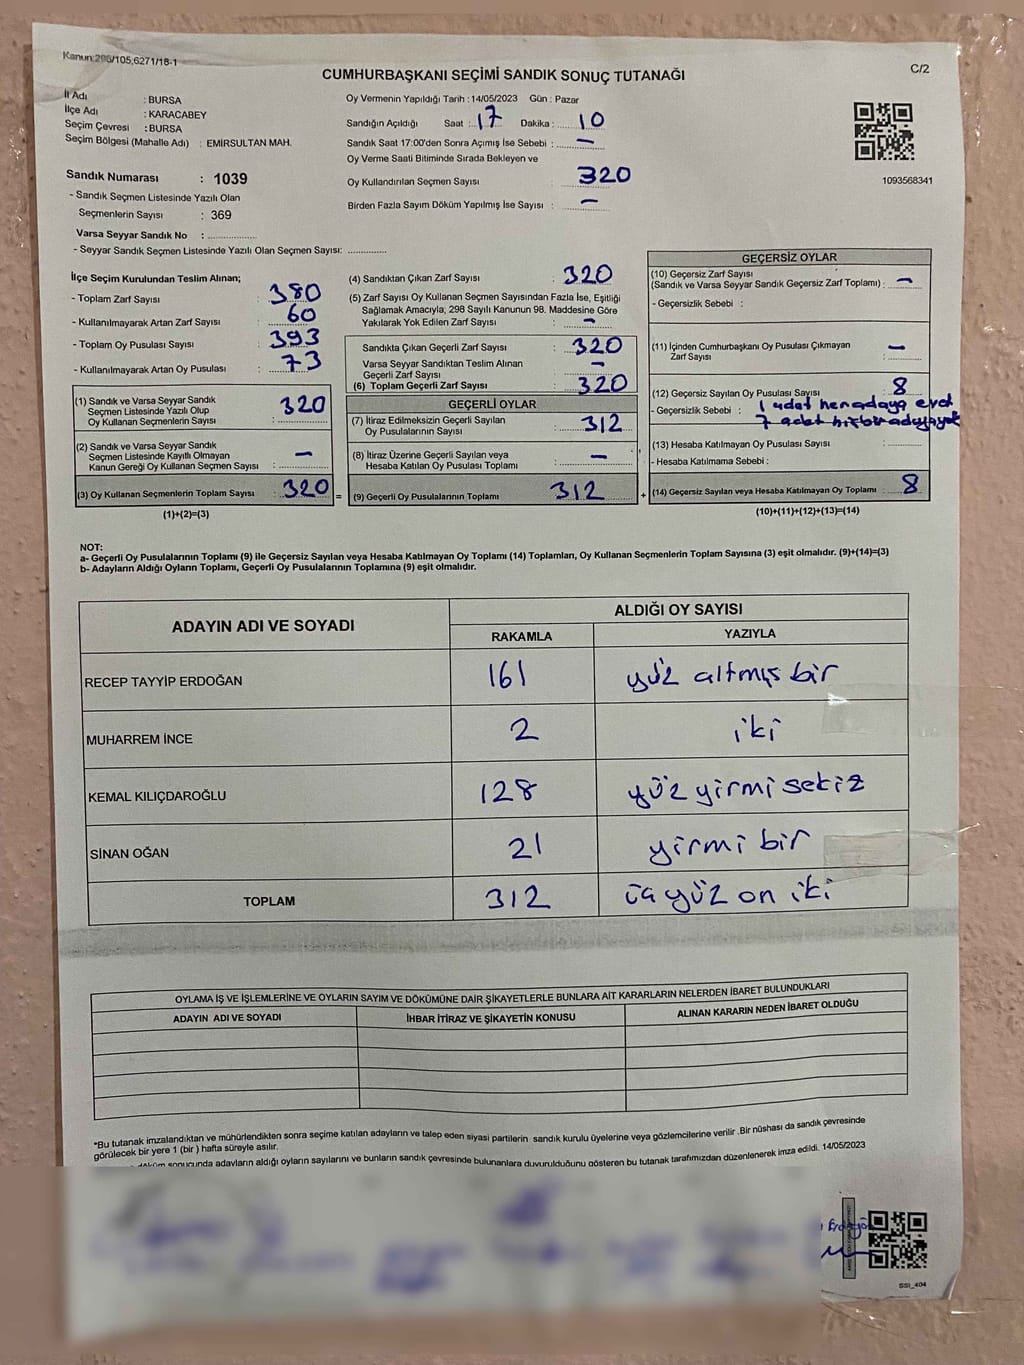 Kanun:298/105,6271/18-1
C/2
CUMHURBAŞKANI SEÇİMİ SANDIK SONUÇ TUTANAĞI
İl Adı : BURSA
İlçe Adı : KARACABEY
Seçim Çevresi : BURSA
Seçim Bölgesi (Mahalle Adı) : EMİRSULTAN MAH.
Sandık Numarası : 1039
- Sandık Seçmen Listesinde Yazılı Olan
Seçmenlerin Sayısı : 369
Varsa Seyyar Sandık No : ..............
- Seyyar Sandık Seçmen Listesinde Yazılı Olan Seçmen Sayısı: ............
Oy Vermenin Yapıldığı Tarih : 14/05/2023 Gün : Pazar
Sandığın Açıldığı Saat : 17 Dakika : 10
Sandık Saat 17:00'den Sonra Açımış İse Sebebi : —
Oy Verme Saati Bitiminde Sırada Bekleyen ve
Oy Kullandırılan Seçmen Sayısı 320
Birden Fazla Sayım Döküm Yapılmış İse Sayısı : —
1093568341
İlçe Seçim Kurulundan Teslim Alınan;
- Toplam Zarf Sayısı : 380
- Kullanılmayarak Artan Zarf Sayısı : 60
- Toplam Oy Pusulası Sayısı : 393
- Kullanılmayarak Artan Oy Pusulası : 73
(1) Sandık ve Varsa Seyyar Sandık
Seçmen Listesinde Yazılı Olup
Oy Kullanan Seçmenlerin Sayısı : 320
(2) Sandık ve Varsa Seyyar Sandık
Seçmen Listesinde Kayıtlı Olmayan
Kanun Gereği Oy Kullanan Seçmen Sayısı : —
(3) Oy Kullanan Seçmenlerin Toplam Sayısı : 320 =
(1)+(2)=(3)
(4) Sandıktan Çıkan Zarf Sayısı : 320
(5) Zarf Sayısı Oy Kullanan Seçmen Sayısından Fazla İse, Eşitliği
Sağlamak Amacıyla; 298 Sayılı Kanunun 98. Maddesine Göre
Yakılarak Yok Edilen Zarf Sayısı : —
Sandıkta Çıkan Geçerli Zarf Sayısı : 320
Varsa Seyyar Sandıktan Teslim Alınan
Geçerli Zarf Sayısı : —
(6) Toplam Geçerli Zarf Sayısı : 320
GEÇERLİ OYLAR
(7) İtiraz Edilmeksizin Geçerli Sayılan
Oy Pusulalarının Sayısı : 312
(8) İtiraz Üzerine Geçerli Sayılan veya
Hesaba Katılan Oy Pusulası Toplamı : —
(9) Geçerli Oy Pusulalarının Toplamı 312 +
GEÇERSİZ OYLAR
(10) Geçersiz Zarf Sayısı
(Sandık ve Varsa Seyyar Sandık Geçersiz Zarf Toplamı) : —
- Geçersizlik Sebebi :
(11) İçinden Cumhurbaşkanı Oy Pusulası Çıkmayan
Zarf Sayısı : —
(12) Geçersiz Sayılan Oy Pusulası Sayısı : 8
- Geçersizlik Sebebi : 1 adet her adaya evet
7 adet hiçbir adaya yok
(13) Hesaba Katılmayan Oy Pusulası Sayısı :
- Hesaba Katılmama Sebebi :
(14) Geçersiz Sayılan veya Hesaba Katılmayan Oy Toplamı : 8
(10)+(11)+(12)+(13)=(14)
NOT:
a- Geçerli Oy Pusulalarının Toplamı (9) ile Geçersiz Sayılan veya Hesaba Katılmayan Oy Toplamı (14) Toplamları, Oy Kullanan Seçmenlerin Toplam Sayısına (3) eşit olmalıdır. (9)+(14)=(3)
b- Adayların Aldığı Oyların Toplamı, Geçerli Oy Pusulalarının Toplamına (9) eşit olmalıdır.
ADAYIN ADI VE SOYADI ALDIĞI OY SAYISI
RAKAMLA YAZIYLA
RECEP TAYYİP ERDOĞAN 161 yüz altmış bir
MUHARREM İNCE 2 iki
KEMAL KILIÇDAROĞLU 128 yüz yirmi sekiz
SİNAN OĞAN 21 yirmi bir
TOPLAM 312 üçyüz on iki
OYLAMA İŞ VE İŞLEMLERİNE VE OYLARIN SAYIM VE DÖKÜMÜNE DAİR ŞİKAYETLERLE BUNLARA AİT KARARLARIN NELERDEN İBARET BULUNDUKLARI
ADAYIN ADI VE SOYADI İHBAR İTİRAZ VE ŞİKAYETİN KONUSU ALINAN KARARIN NEDEN İBARET OLDUĞU
*Bu tutanak imzalandıktan ve mühürlendikten sonra seçime katılan adayların ve talep eden siyasi partilerin sandık kurulu üyelerine veya gözlemcilerine verilir .Bir nüshası da sandık çevresinde
görülecek bir yere 1 (bir ) hafta süreyle asılır.
sonucunda adayların aldığı oyların sayılarını ve bunların sandık çevresinde bulunanlara duyurulduğunu gösteren bu tutanak tarafımızdan düzenlenerek imza edildi. 14/05/2023
SSI_404